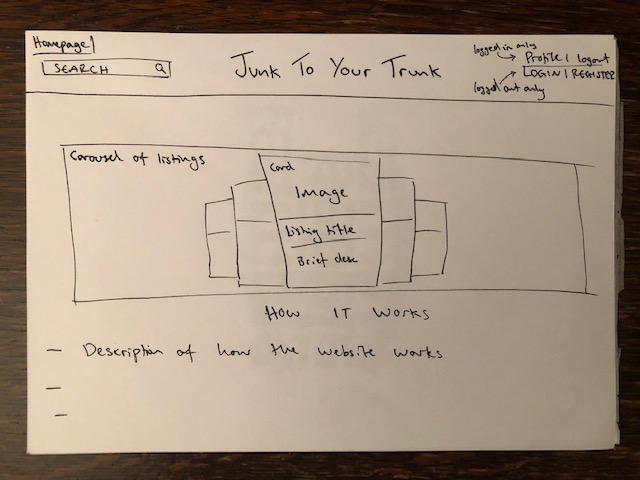 Homepage
SEARCH
Junk To Your Trunk
logged in only
Profile / logout
LOGIN / REGISTER
logged out only
Carousel of listings
Card
Image
Listing title
Brief desc
How IT Works
- Description of how the website works
-
-